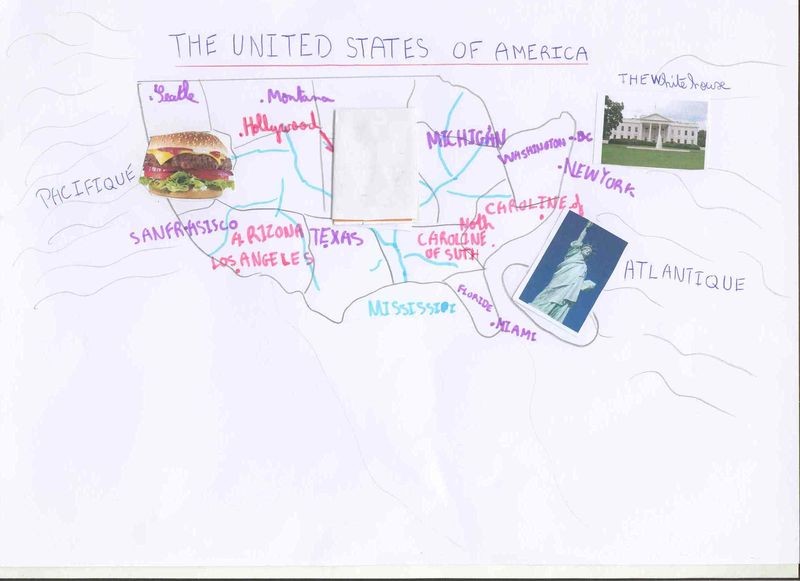 THE UNITED STATES OF AMERICA
THE White house
.Seatle
.Montana
.Hollywood
MICHIGAN
WASHINGTON-DC
.NEWYORK
PACIFIQUE
CAROLINE of
Noth
SANFRASISCO
ARIZONA
TEXAS
CAROLINE
OF SUTH
LOS ANGELES
ATLANTIQUE
FLORIDE
MISSISSIPI
.MIAMI